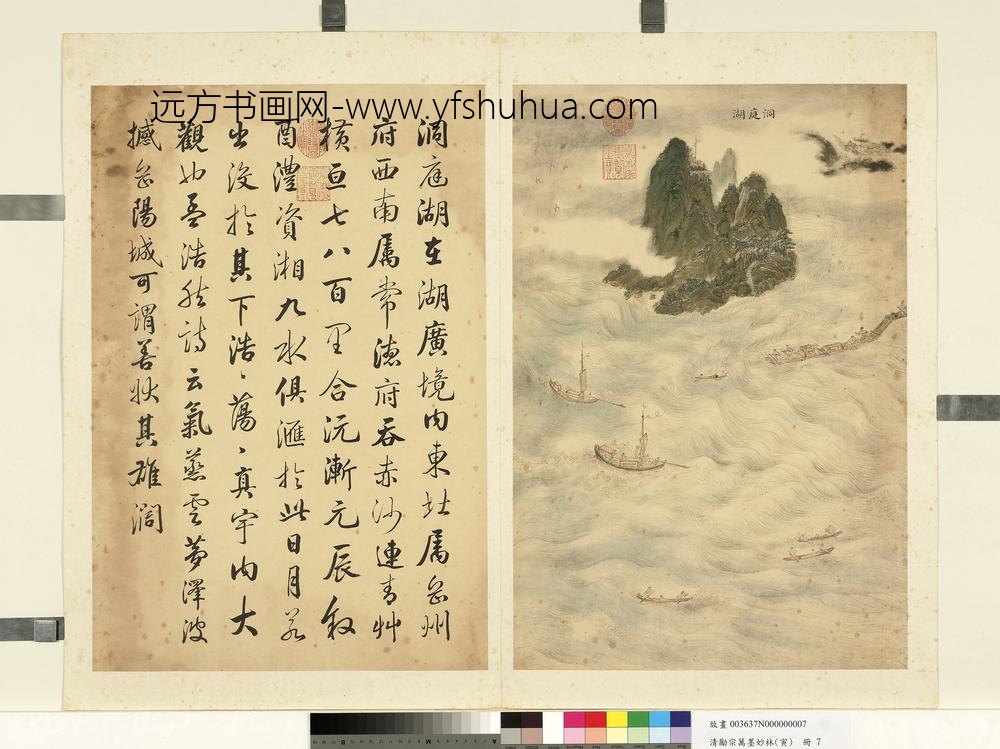 远方书画网-www.yfshuhua.com
湖庭洞
洞庭湖在湖廣境内東北屬岳州
府西南屬常德府吞赤沙連青艸
横亘七八百里合沅漸元辰叙
酉澧資湘九水俱滙於此日月若
出没於其下浩〻蕩〻真宇内大
觀也孟浩然詩云氣蒸雲夢澤波
撼岳陽城可謂善狀其雄濶
故畫 003637N000000007
清勵宗萬墨妙林(寅) 冊 7